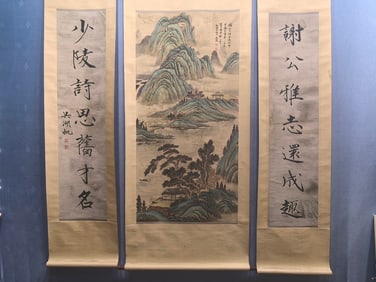 謝公雅志還成趣
少陵詩思舊才名
吳湖帆